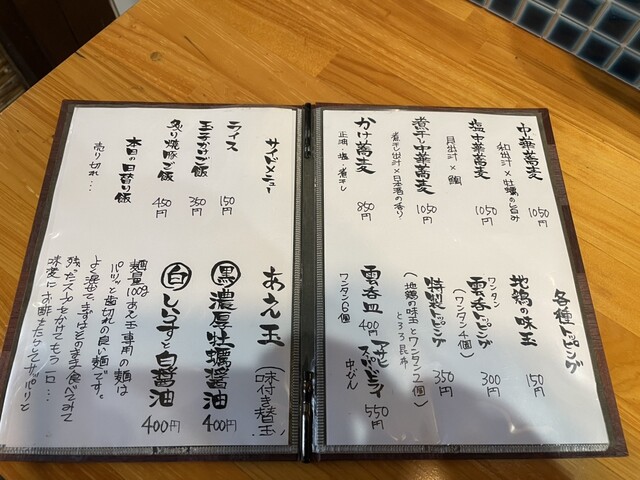 中華蕎麦
和出汁×牡蠣の旨み
1050円
塩中華蕎麦
目出汁×鯛
1050円
煮干し中華蕎麦
煮干し出汁×日本酒の香り
1050円
かけ蕎麦
正油・塩・煮干し
850円
各種トッピング
地鶏の味玉
150円
ワンタン
雲呑トッピング
(ワンタン4個)
300円
特製トッピング
350円
(地鶏の味玉とワンタン2個
ところ昆布)
雲呑皿
400円
ワンタン6個
アサヒ
スーパードライ
中びん
550円
サイドメニュー
ライス
150円
玉子かけご飯
350円
炙り焼豚ご飯
450円
本日の日替り飯
売り切れ…
あえ玉
(味付き替玉)
黒 濃厚牡蠣醤油
400円
白 しらすと白醤油
400円
麺量100gあえ玉専用の麺は
パツッと歯切れの良い麺です。
よく混ぜて、まずはそのまま食べてみて
残ったスープをかけてもう一口…
味変にお酢をたらしてサッパリと